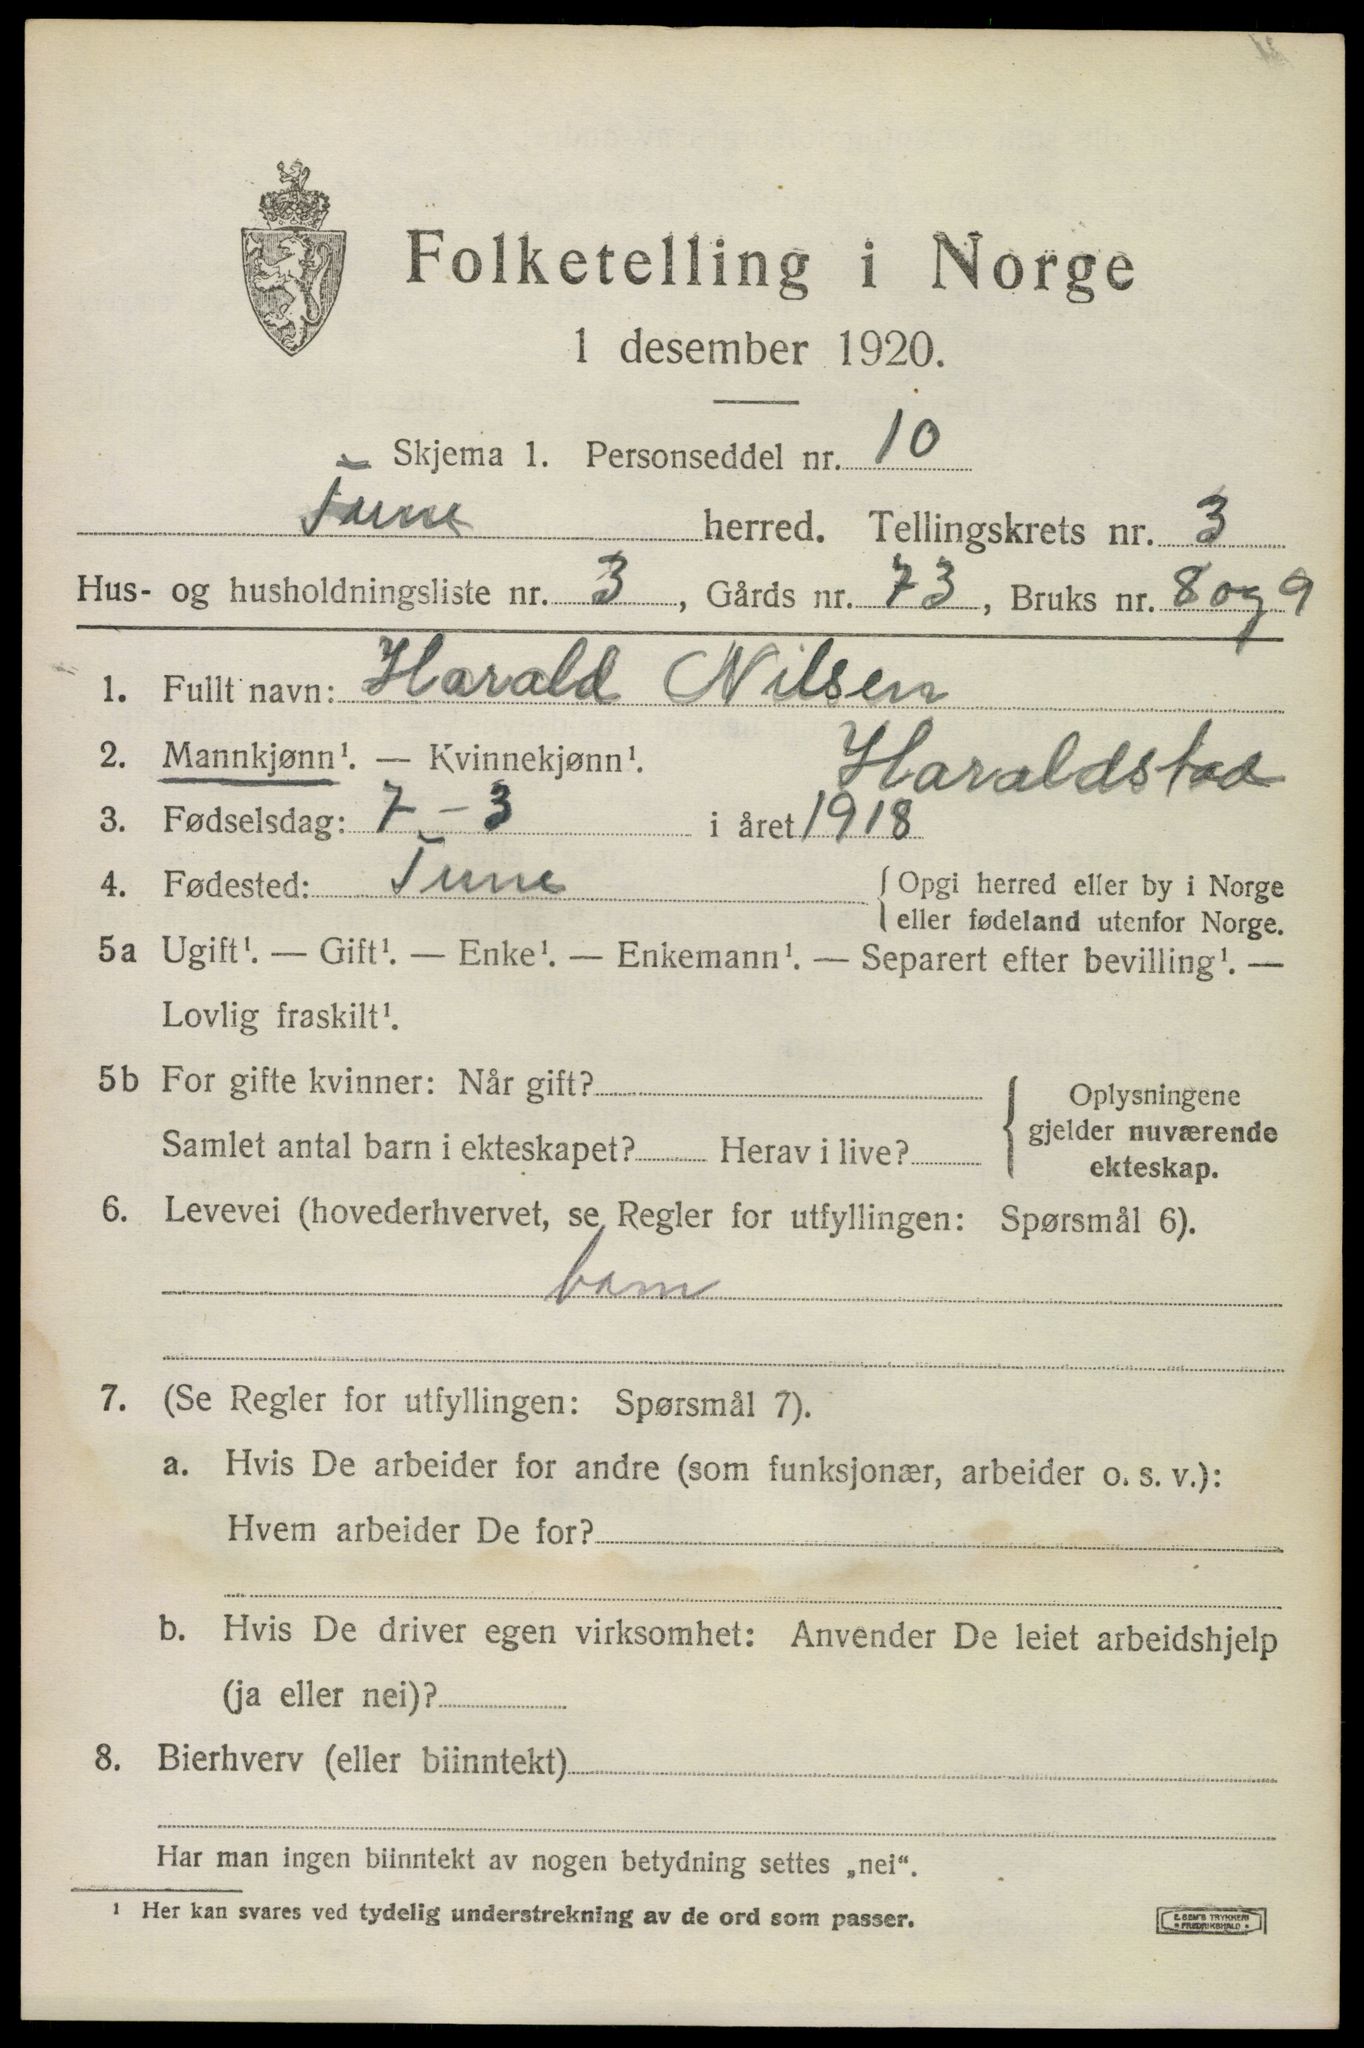 Folketelling i Norge
1 desember 1920.
Skjema 1. Personseddel nr. 10
Tune herred. Tellingskrets nr. 3
Hus- og husholdningsliste nr. 3, Gårds nr. 73, Bruks nr. 8 og 9
1. Fullt navn: Harald Nilsen
Haraldstad
2. Mannkjønn¹. — Kvinnekjønn¹.
3. Fødselsdag: 7 - 3 i året 1918
4. Fødested: Tune { Opgi herred eller by i Norge
eller fødeland utenfor Norge.
5a Ugift¹. — Gift¹. — Enke¹. — Enkemann¹. — Separert efter bevilling¹. —
Lovlig fraskilt¹.
5b For gifte kvinner: Når gift?
Samlet antal barn i ekteskapet? Herav i live?
{ Oplysningene
gjelder nuværende
ekteskap.
6. Levevei (hovederhvervet, se Regler for utfyllingen: Spørsmål 6).
barn
7. (Se Regler for utfyllingen: Spørsmål 7).
a. Hvis De arbeider for andre (som funksjonær, arbeider o. s. v.):
Hvem arbeider De for?
b. Hvis De driver egen virksomhet: Anvender De leiet arbeidshjelp
(ja eller nei)?
8. Bierhverv (eller biinntekt)
Har man ingen biinntekt av nogen betydning settes „nei“.
¹ Her kan svares ved tydelig understrekning av de ord som passer.
E. SEM'S TRYKKERI
* FREDRIKSHALD *